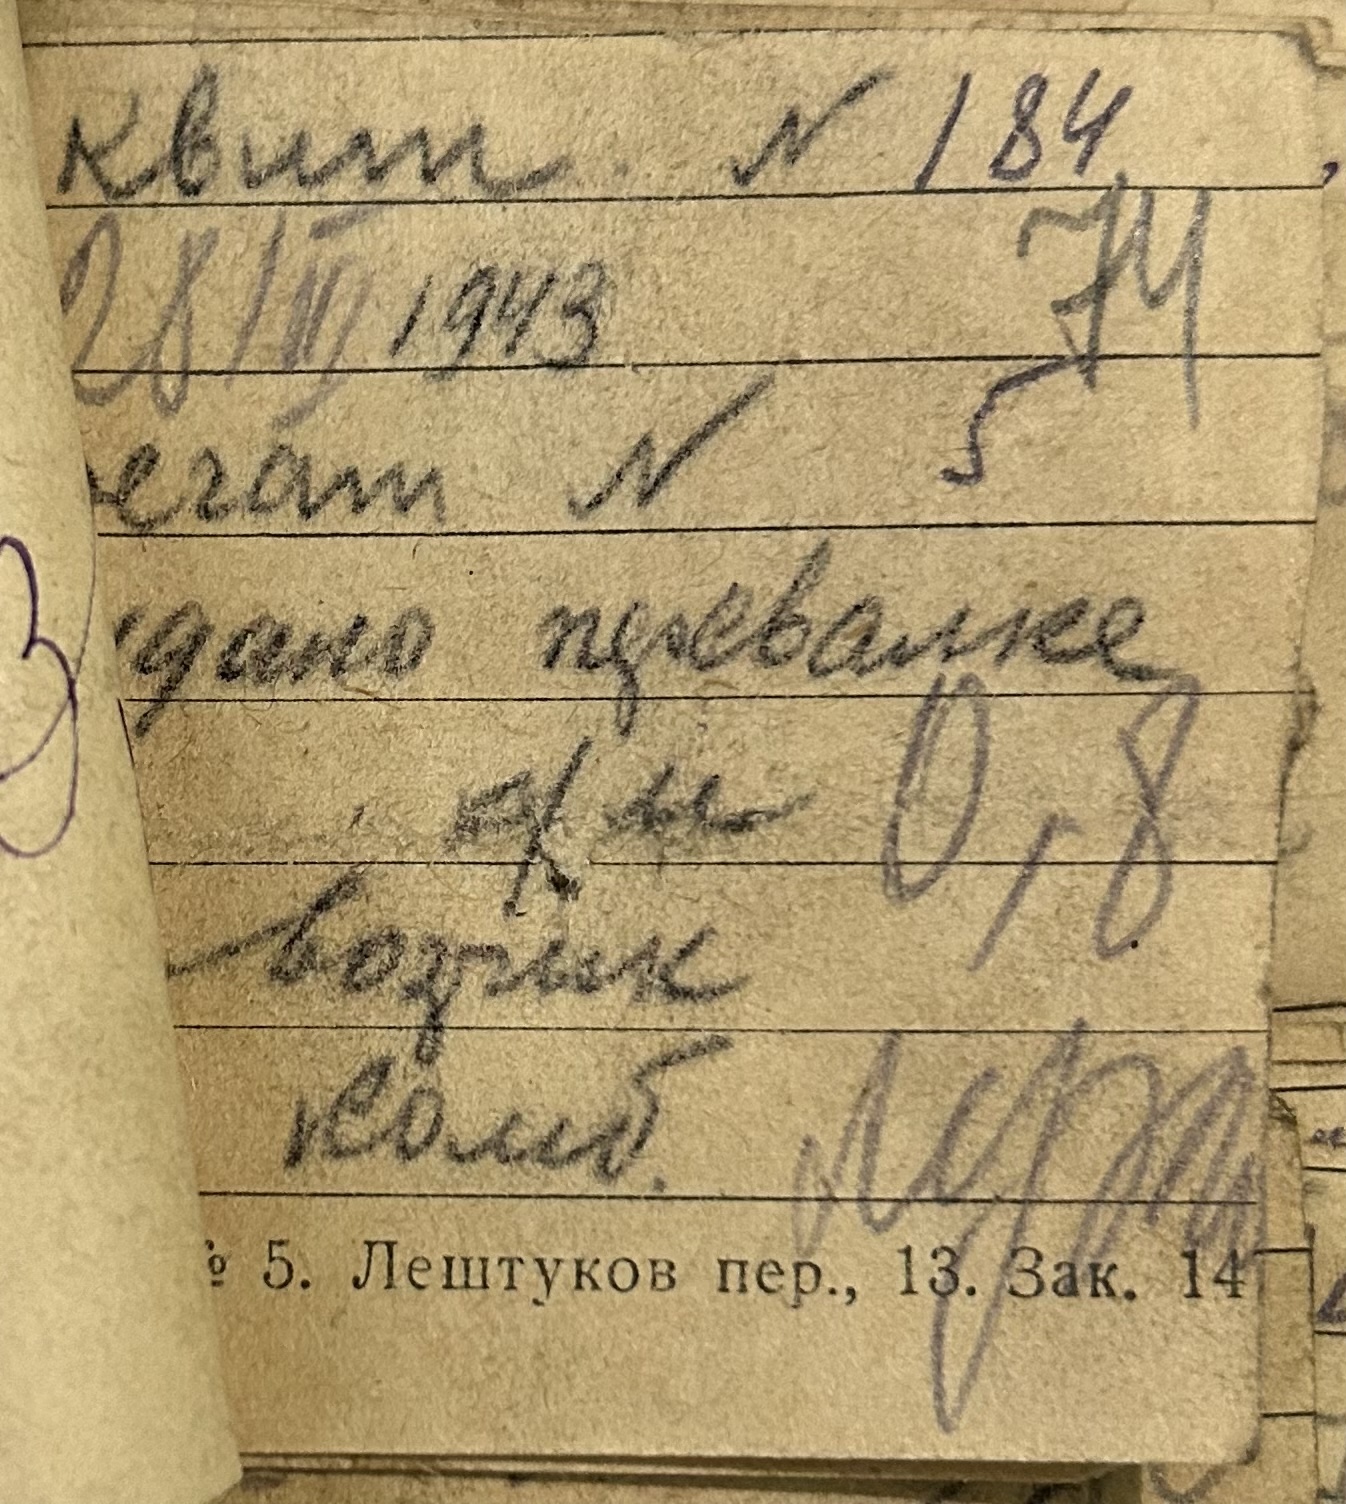 квит. N 184
28/III 1943 74
егат N 5
дано перевалке
0,8
возчик
Комб.
№ 5. Лештуков пер., 13. Зак. 14
3